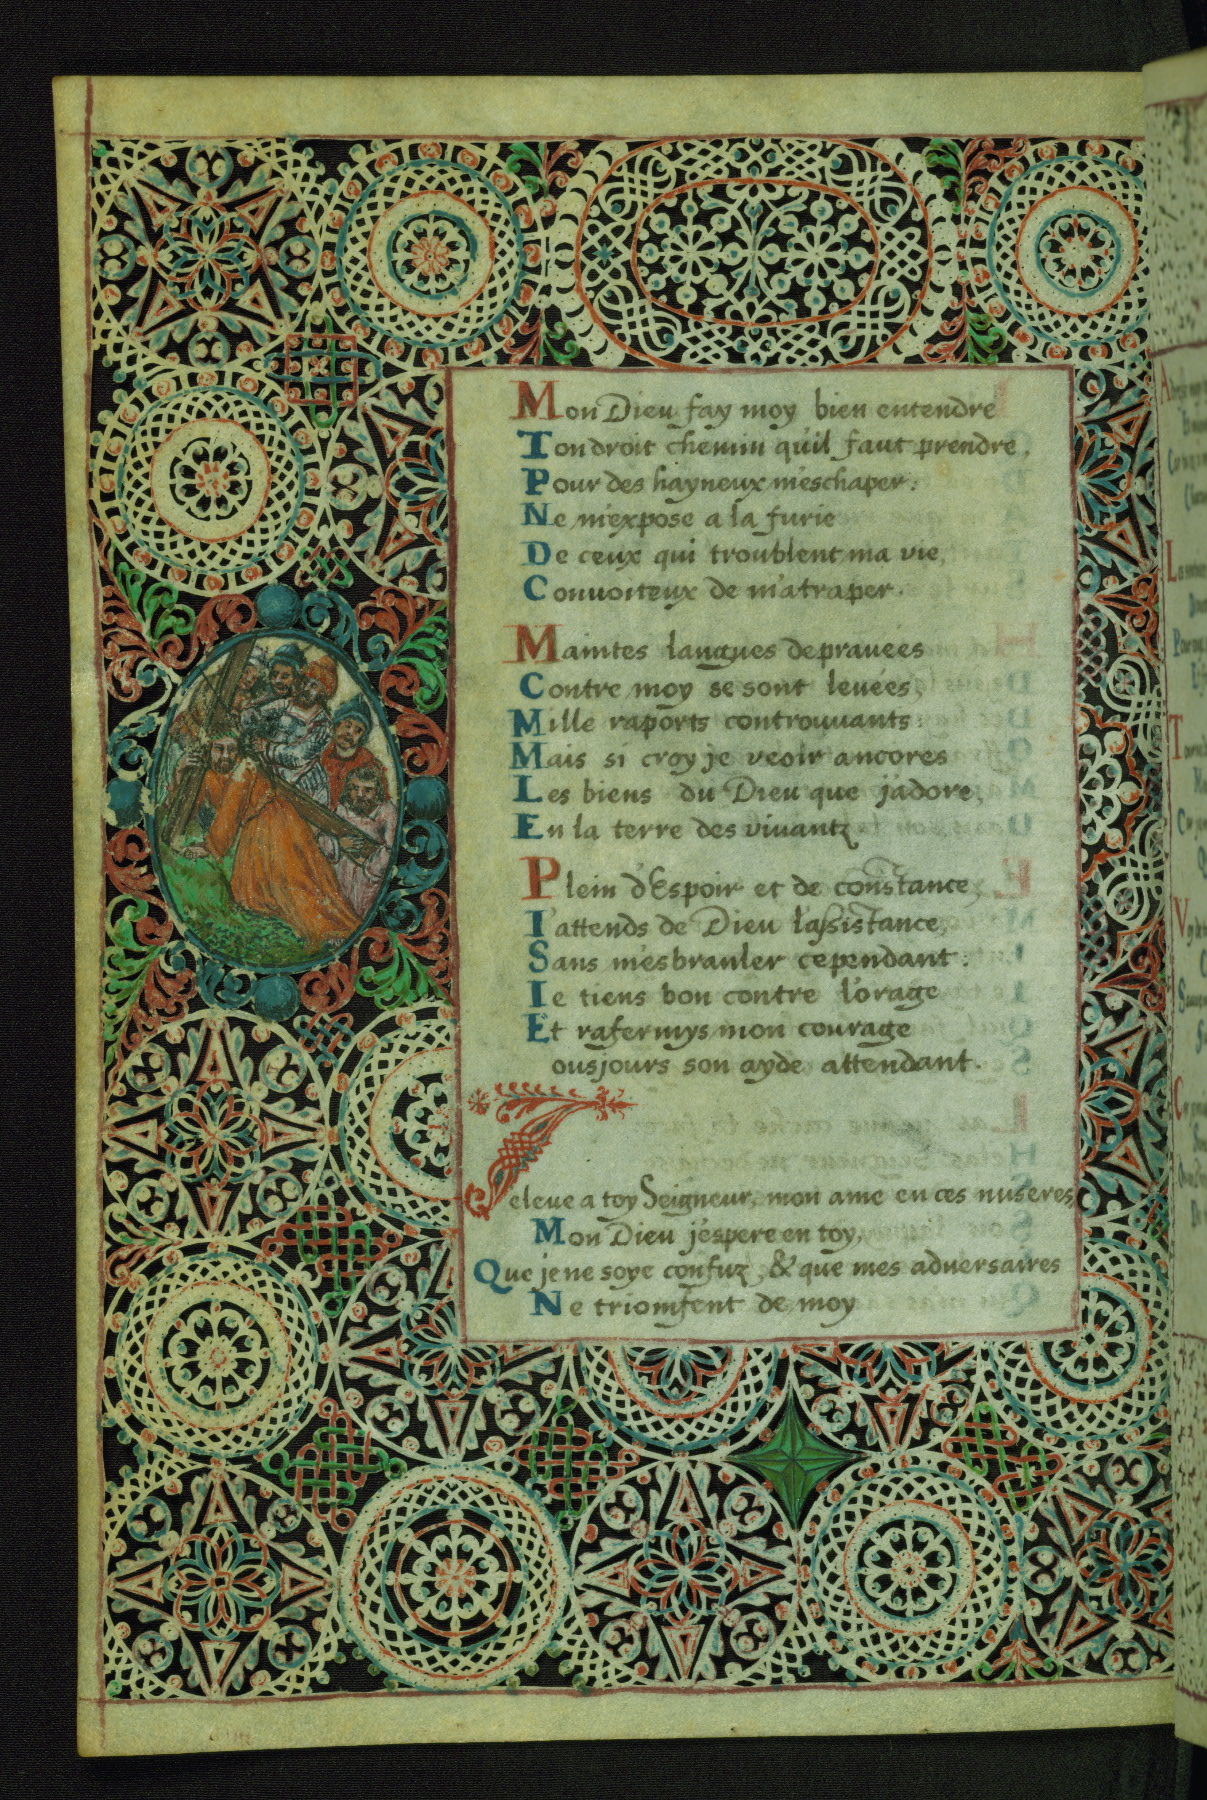 Mon Dieu fay moy bien entendre
Ton droit chemin qu'il faut prendre,
Pour des hayneux m'eschaper.
Ne m'expose a la furie
De ceux qui troublent ma vie,
Conuoiteux de m'atraper.
Maintes langues deprauées
Contre moy se sont leuées,
Mille raports controuuants
Mais si croy je veoir ancores
Les biens du Dieu que j'adore,
En la terre des viuantz
Plein d'Espoir et de constance,
I'attends de Dieu l'assistance,
Sans m'esbranler cependant.
Ie tiens bon contre l'orage
Et rafermys mon courage
ousjours son ayde attendant.
I'eleue a toy Seigneur, mon ame en ces miseres,
Mon Dieu j'espere en toy,
Que je ne soye confuz, & que mes aduersaires
Ne triomfent de moy